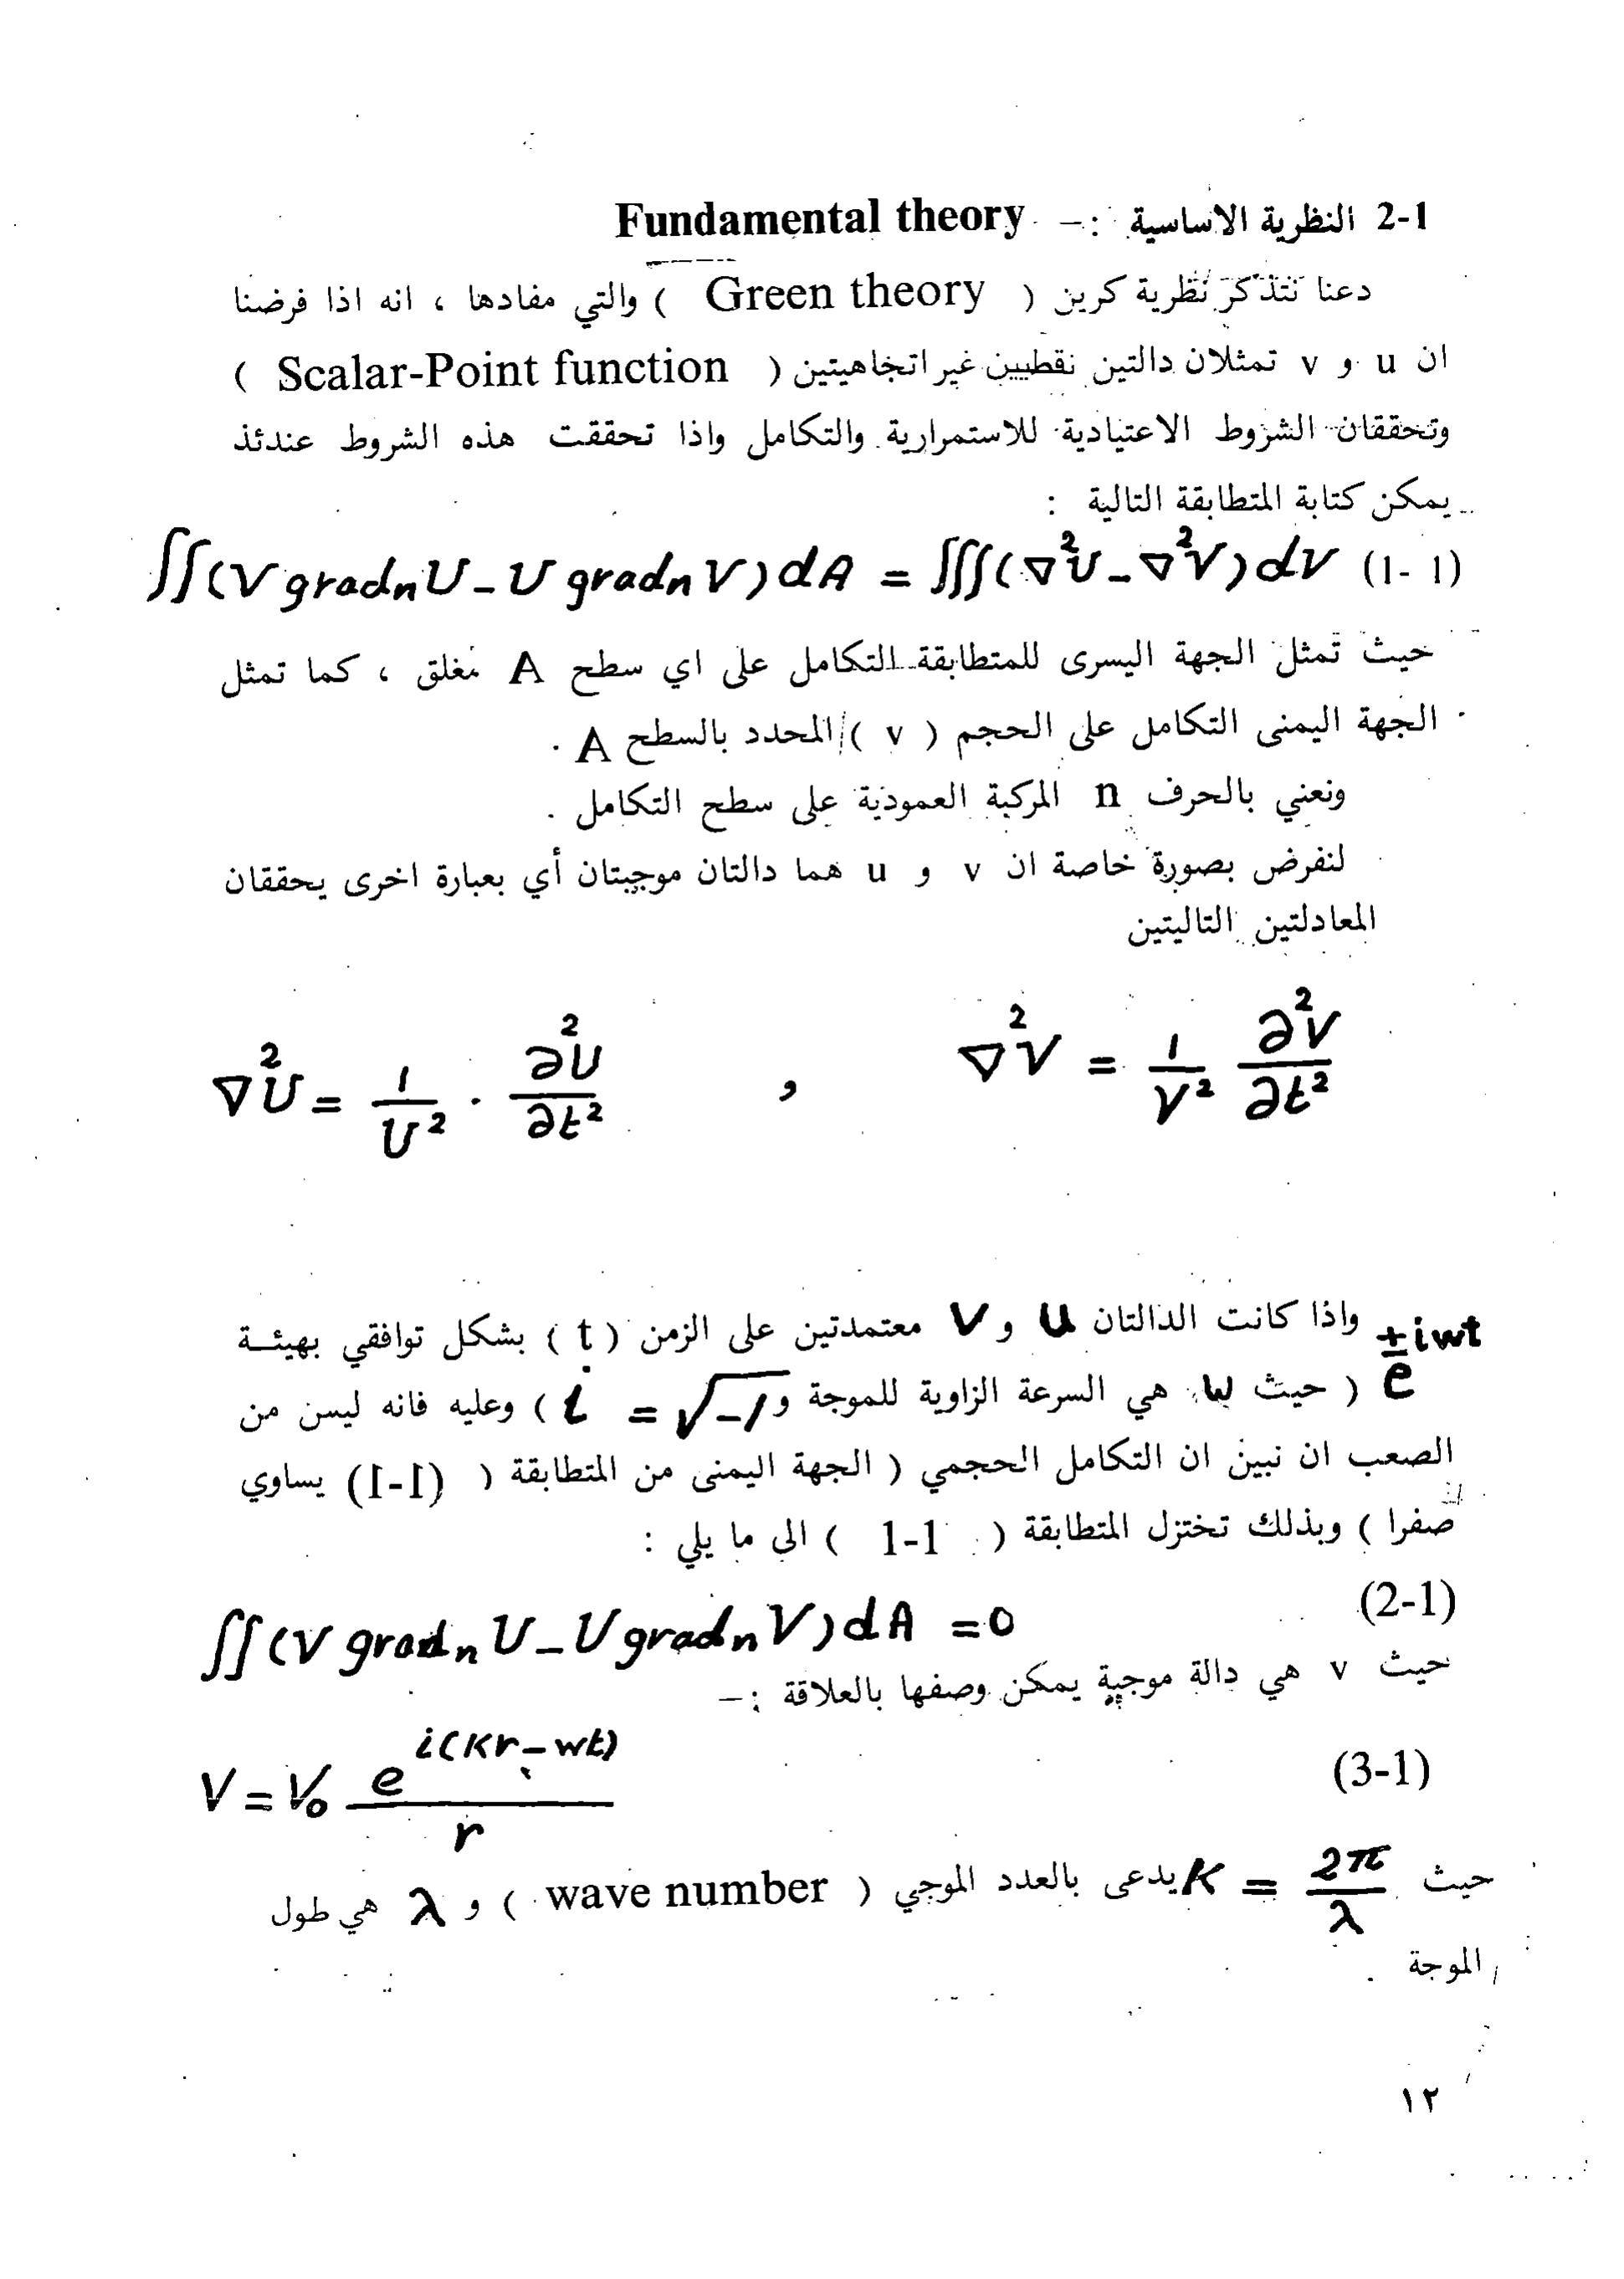 2-1 النظرية الاساسية :– Fundamental theory
دعنا نتذكر نظرية كرين ( Green theory ) والتي مفادها ، انه اذا فرضنا
ان u و v تمثلان دالتين نقطيين غير اتجاهيتين ( Scalar-Point function )
وتحققان الشروط الاعتيادية للاستمرارية والتكامل واذا تحققت هذه الشروط عندئذ
يمكن كتابة المتطابقة التالية :
∬(V gradₙ U – U gradₙ V) dA = ∭(∇²U – ∇²V) dV (1-1)
حيث تمثل الجهة اليسرى للمتطابقة التكامل على اي سطح A مغلق ، كما تمثل
الجهة اليمنى التكامل على الحجم ( v ) المحدد بالسطح A .
ونعني بالحرف n المركبة العمودية على سطح التكامل .
لنفرض بصورة خاصة ان v و u هما دالتان موجيتان أي بعبارة اخرى يحققان
المعادلتين التاليتين
∇²U = 1/U² · ∂²U/∂t² , ∇²V = 1/V² ∂²V/∂t²
واذا كانت الدالتان u و V معتمدتين على الزمن ( t ) بشكل توافقي بهيئة
e^±iwt ( حيث w هي السرعة الزاوية للموجة و i = √-1 ) وعليه فانه ليسن من
الصعب ان نبين ان التكامل الحجمي ( الجهة اليمنى من المتطابقة ( (1-1) يساوي
صفرا ) وبذلك تختزل المتطابقة ( 1-1 ) الى ما يلي :
∬(V gradₙ U – U gradₙ V) dA = 0 (2-1)
حيث v هي دالة موجية يمكن وصفها بالعلاقة :–
V = V₀ e^i(Kr-wt) / r (3-1)
حيث K = 2π/λ يدعى بالعدد الموجي ( wave number ) و λ هي طول
الموجة .
١٢